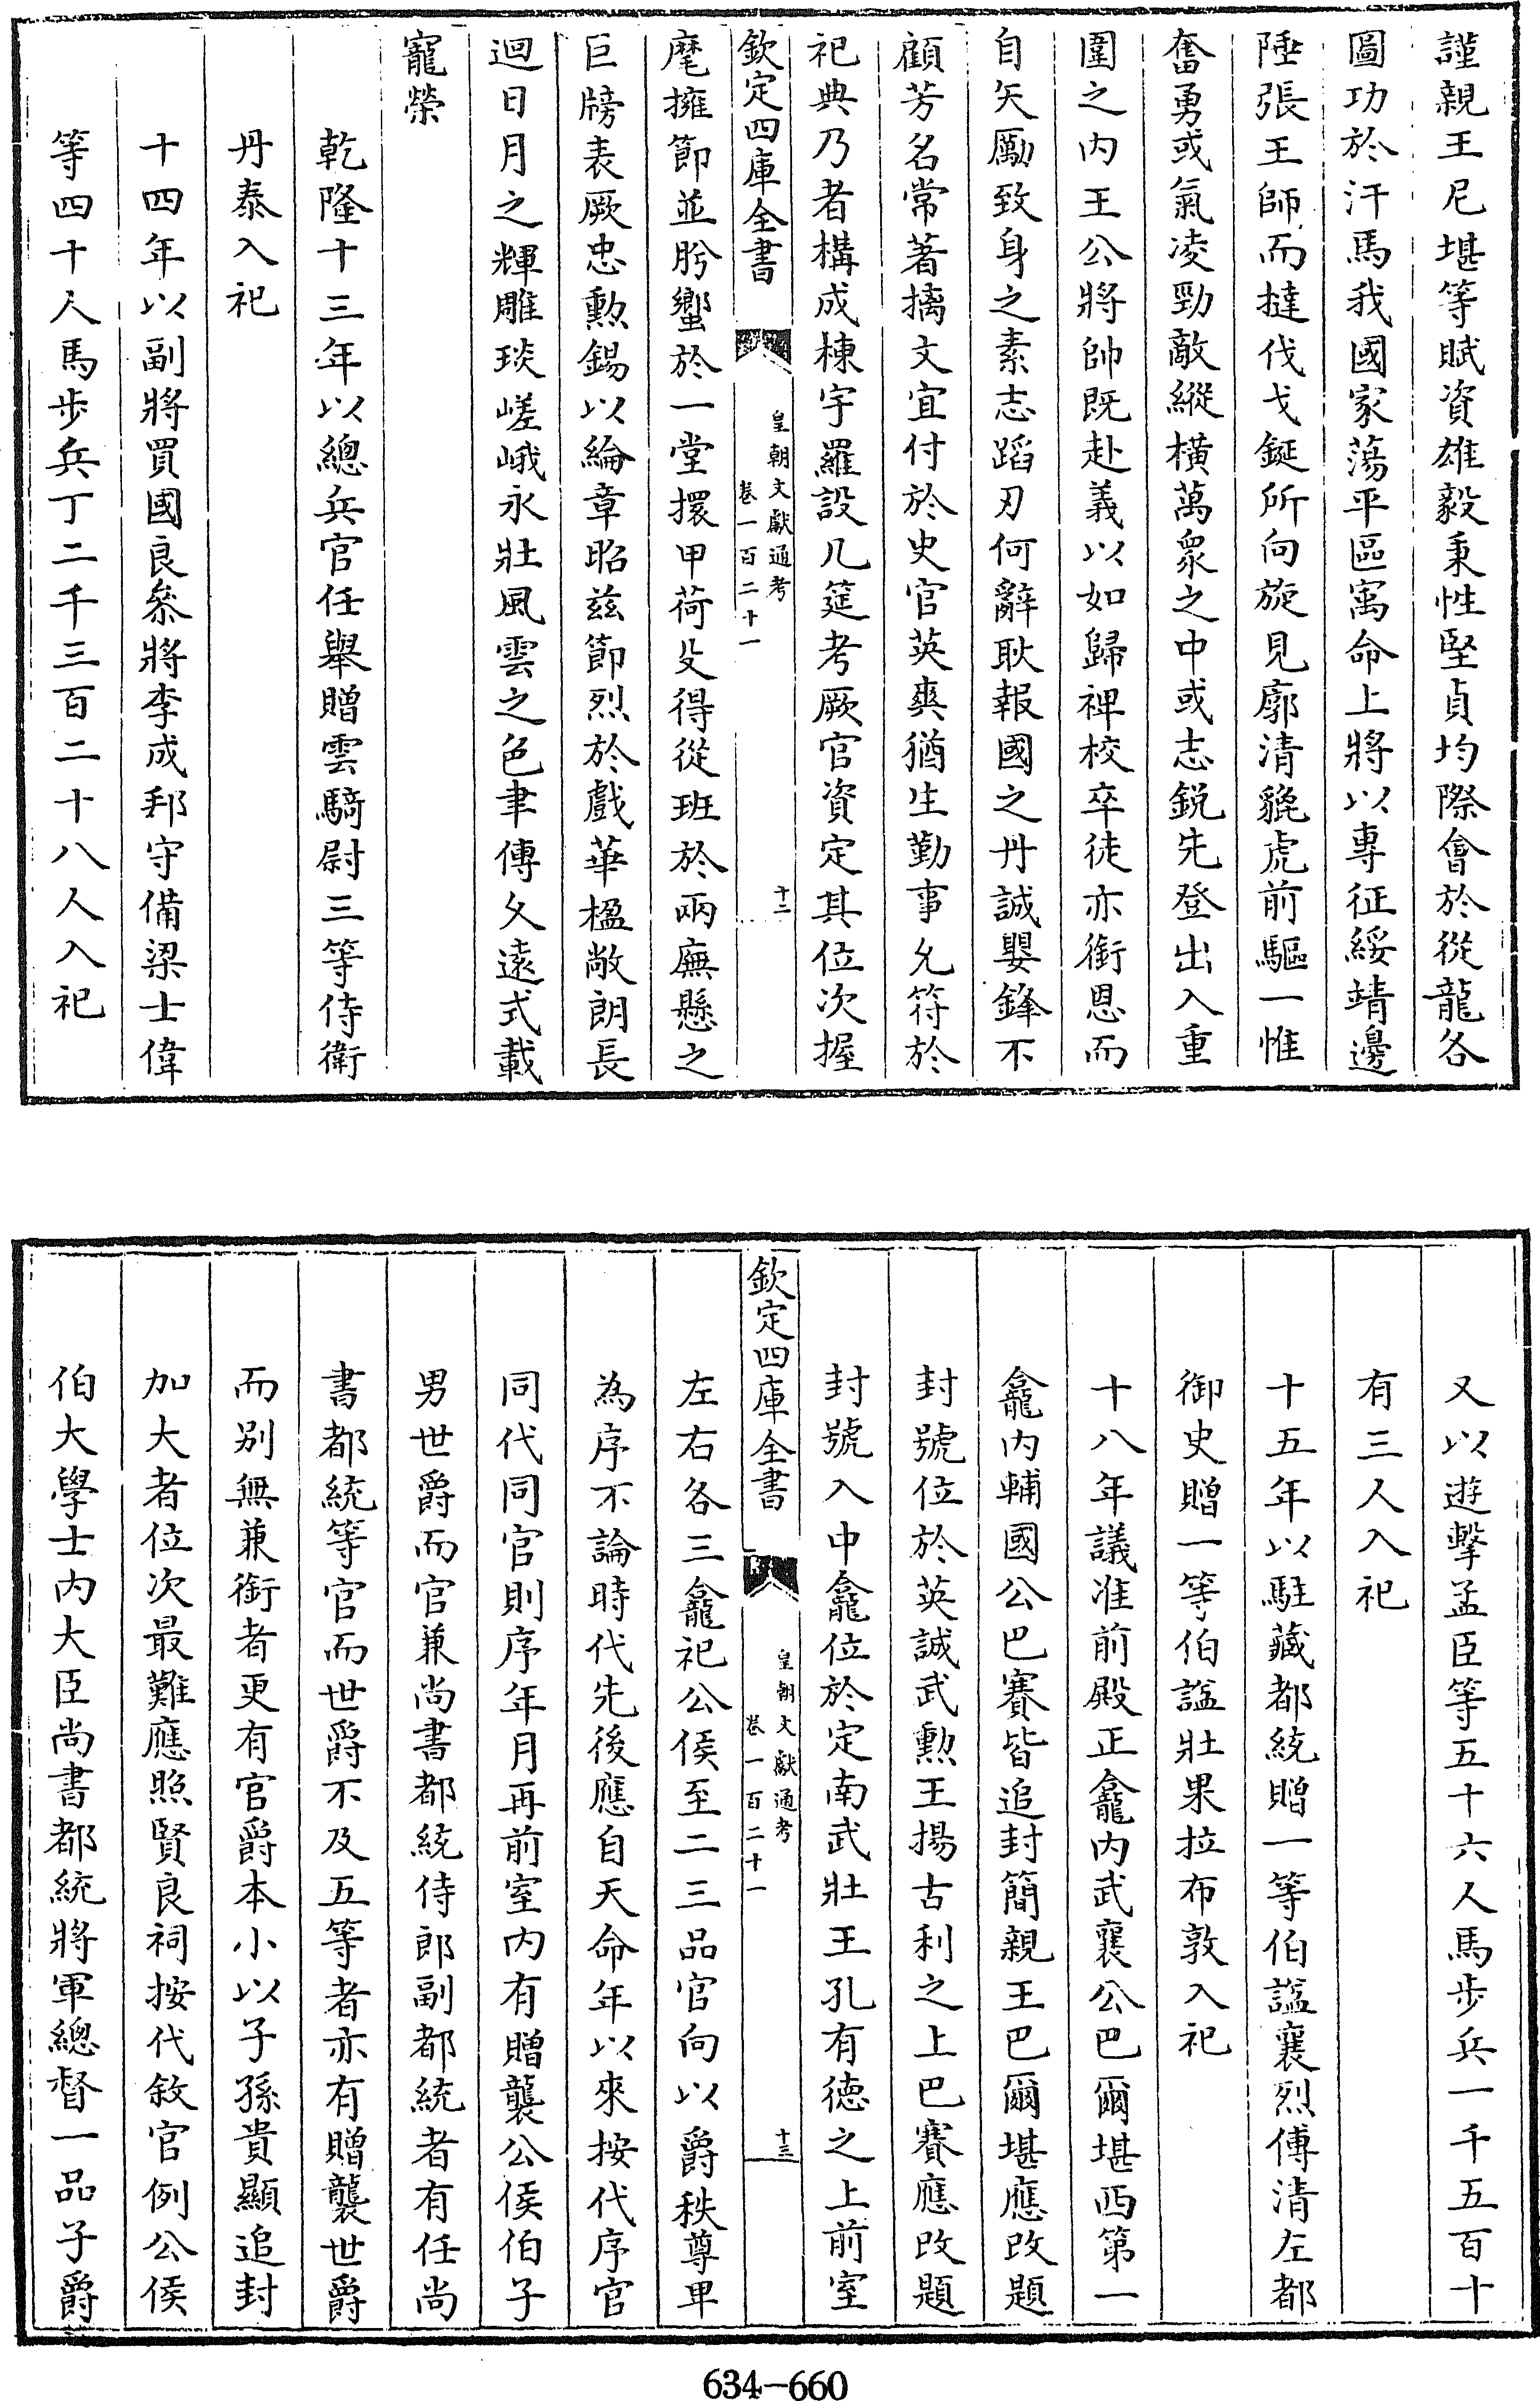 謹親王尼堪等賦資雄毅秉性堅貞均際會於從龍各
圖功於汗馬我國家蕩平區寓命上將以專征綏靖邊
陲張王師而撻伐戈鋋所向旋見廓清貔虎前驅一惟
奮勇或氣凌勁敵縱橫萬衆之中或志鋭先登出入重
圍之内王公將帥既赴義以如歸禆校卒徒亦銜恩而
自矢勵致身之素志蹈刃何辭耿報國之丹誠嬰鋒不
顧芳名常著摛文宜付於史官英爽猶生勤事允符於
祀典乃者構成棟宇羅設几筵考厥官資定其位次握
欽定四庫全書
皇朝文獻通考
卷一百二十一
十二
麾擁節並肹蠁於一堂擐甲荷殳得從班於兩廡懸之
巨牓表厥忠勲錫以綸章昭兹節烈於戲華楹敞朗長
迴日月之輝雕琰嵯峨永壯風雲之色聿傳久遠式載
寵榮
乾隆十三年以總兵官任舉贈雲騎尉三等侍衛
丹泰入祀
十四年以副將買國良叅將李成邦守備梁士偉
等四十人馬步兵丁二千三百二十八人入祀
又以遊擊孟臣等五十六人馬步兵一千五百十
有三人入祀
十五年以駐藏都統贈一等伯諡襄烈傅清左都
御史贈一等伯諡壯果拉布敦入祀
十八年議准前殿正龕内武襄公巴爾堪西第一
龕内輔國公巴賽皆追封簡親王巴爾堪應改題
封號位於英誠武勲王揚古利之上巴賽應改題
封號入中龕位於定南武壯王孔有德之上前室
欽定四庫全書
皇朝文獻通考
卷一百二十一
十三
左右各三龕祀公侯至二三品官向以爵秩尊卑
為序不論時代先後應自天命年以來按代序官
同代同官則序年月再前室内有贈襲公侯伯子
男世爵而官兼尚書都統侍郎副都統者有任尚
書都統等官而世爵不及五等者亦有贈襲世爵
而别無兼銜者更有官爵本小以子孫貴顯追封
加大者位次最難應照賢良祠按代敘官例公侯
伯大學士内大臣尚書都統將軍總督一品子爵
634-660